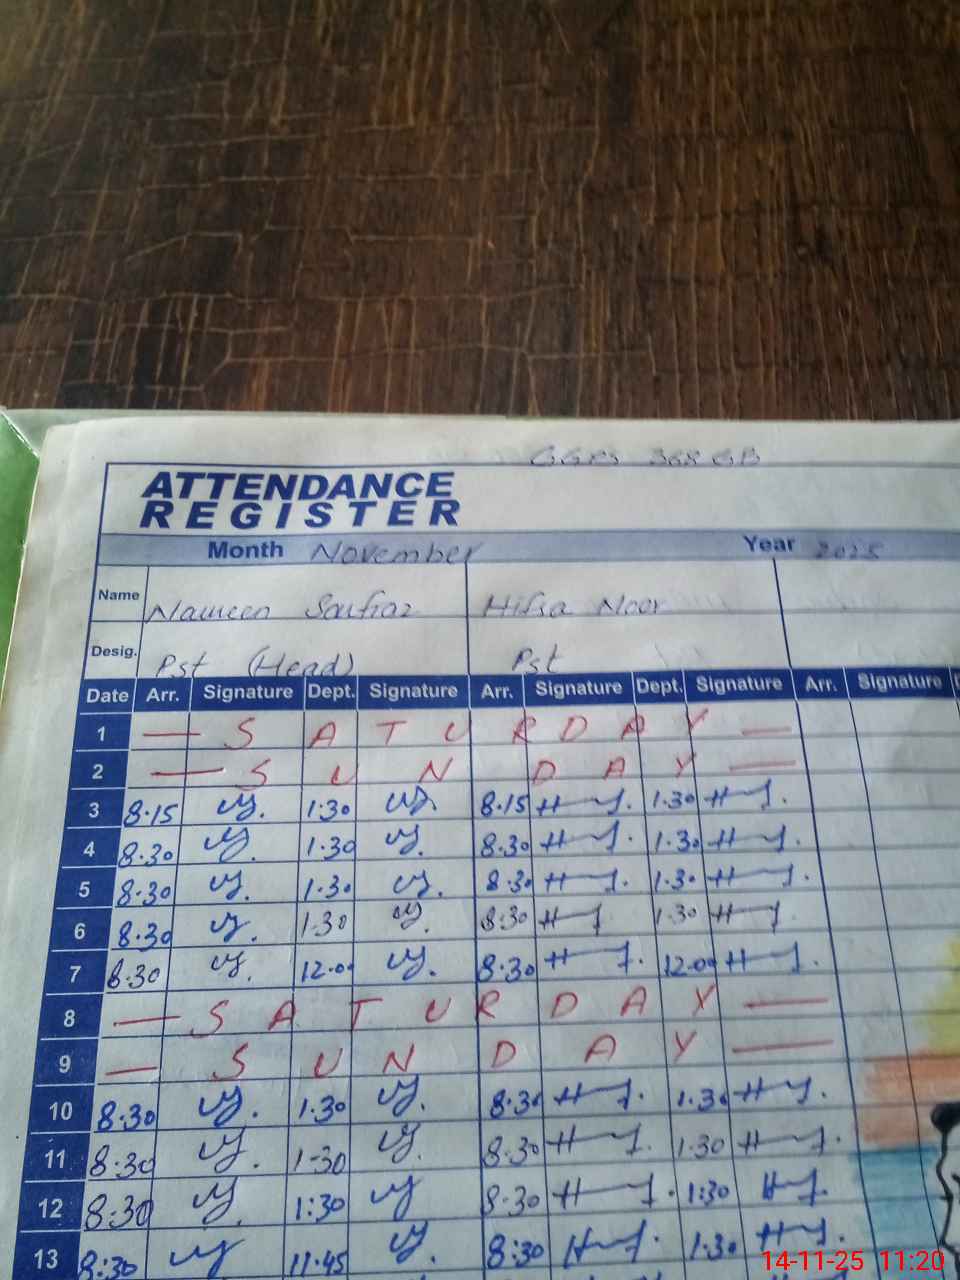 GGPS 368 GB
ATTENDANCE
REGISTER
Month November Year 2025
Name Hifsa Noor
Desig. Pst (Head) Pst
Date Arr. Signature Dept. Signature Arr. Signature Dept. Signature Arr. Signature
1 — SATURDAY —
2 — SUNDAY —
3 8.15 1.30 8.15 1.30
4 8.30 1.30 8.30 1.30
5 8.30 1.30 8.30 1.30
6 8.30 1.30 8.30 1.30
7 8.30 12.00 8.30 12.00
8 — SATURDAY —
9 — SUNDAY —
10 8.30 1.30 8.30 1.30
11 8.30 1-30 8.30 1.30
12 8:30 1:30 8.30 1:30
13 8:30 11:45 8:30 1:30
14-11-25 11:20